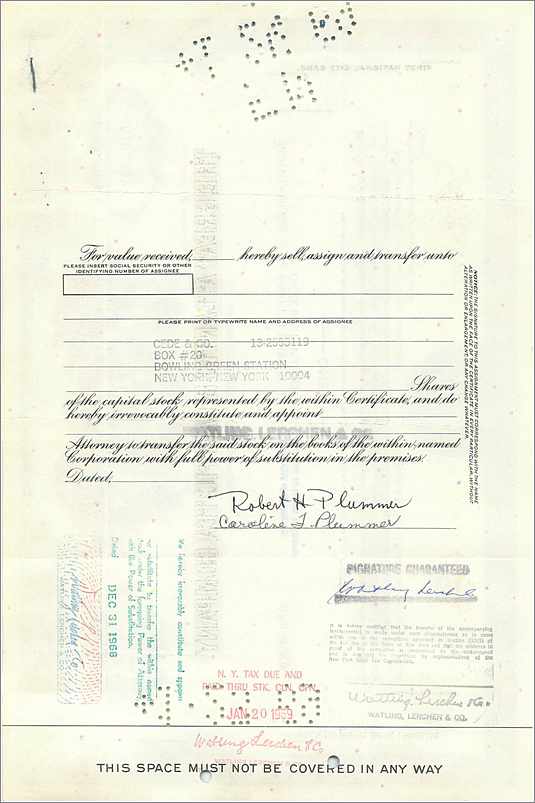 For value received, hereby sell, assign and transfer unto
PLEASE INSERT SOCIAL SECURITY OR OTHER
IDENTIFYING NUMBER OF ASSIGNEE
NOTICE: THE SIGNATURE TO THIS ASSIGNMENT MUST CORRESPOND WITH THE NAME
AS WRITTEN UPON THE FACE OF THE CERTIFICATE IN EVERY PARTICULAR, WITHOUT
ALTERATION OR ENLARGEMENT OR ANY CHANGE WHATEVER.
PLEASE PRINT OR TYPEWRITE NAME AND ADDRESS OF ASSIGNEE
CEDE & CO. 13-2555119
BOX #20
BOWLING GREEN STATION
NEW YORK, NEW YORK 10004
Shares
of the capital stock represented by the within Certificate, and do
hereby irrevocably constitute and appoint
WATLING LERCHEN & CO.
Attorney to transfer the said stock on the books of the within-named
Corporation with full power of substitution in the premises.
Dated,
Robert H Plummer
Caroline F. Plummer
SIGNATURE GUARANTEED
Watling Lerchen
We hereby irrevocably constitute and appoint
our substitute to transfer the within named
stock under the foregoing Power of Attorney
with the Power of Substitution.
Dated DEC 31 1968
N. Y. TAX DUE AND
PAID THRU STK. CLN. CPN.
JAN 20 1969
Watling, Lerchen & Co
WATLING, LERCHEN & CO.
Watling Lerchen & Co
THIS SPACE MUST NOT BE COVERED IN ANY WAY